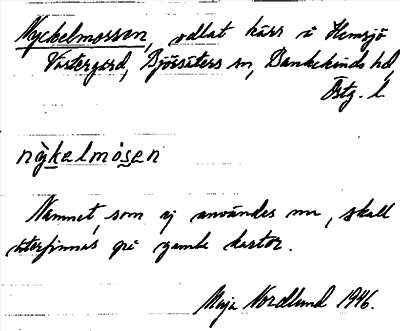 Nyckelmossen, odlat kärr i Hemsjö
Västergård, Björsäters sn, Bankekinds hd,
Östg. l.
nỳkelmósen
Namnet, som ej användes nu, skall
återfinnas på gamla kartor.
Maja Nordlund 1946.